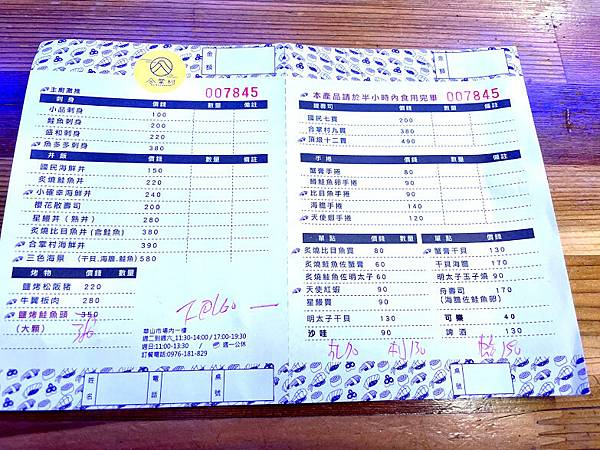 金額
合掌村
主廚激推
007845
刺身 價錢 數量 備註
小品刺身 100
鮭魚刺身 200
盛和刺身 220
魚多多刺身 380
丼飯 價錢 數量 備註
國民海鮮丼 150
炙燒鮭魚丼 220
小確幸海鮮丼 240
櫻花散壽司 200
星鰻丼(熟丼) 280
炙燒比目魚丼(含鮭魚) 380
合掌村海鮮丼 390
三色海景 (干貝.海膽.鮭魚) 580
烤物 價錢 數量
鹽烤松阪豬 220
牛翼板肉 280
鹽烤鮭魚頭 350
(大顆)
華山市場內一樓
週二到週六,11:30-14:00 / 17:00-19:30
週日:11:00-13:30 / 週一公休
訂餐電話:0976-181-829
姓名
電話
桌號
金額
本產品請於半小時內食用完畢
007845
握壽司 價錢 數量 備註
國民七貫 200
合掌村九貫 380
頂級十二貫 490
手捲 價錢 數量 備註
蟹膏手捲 80
鱒鮭魚卵手捲 90
比目魚手捲 90
海膽手捲 140
天使蝦手捲 120
單點 價錢 數量
炙燒比目魚貫 80
炙燒鮭魚佐蟹膏 60
炙燒鮭魚佐明太子 60
天使紅蝦 90
星鰻貫 90
明太子干貝 130
沙哇 90
單點 價錢 數量
蟹膏干貝 130
干貝海膽 170
明太子玉子燒 90
舟壽司 170
(海膽佐鮭魚卵)
可樂 40
啤酒 130
桌號